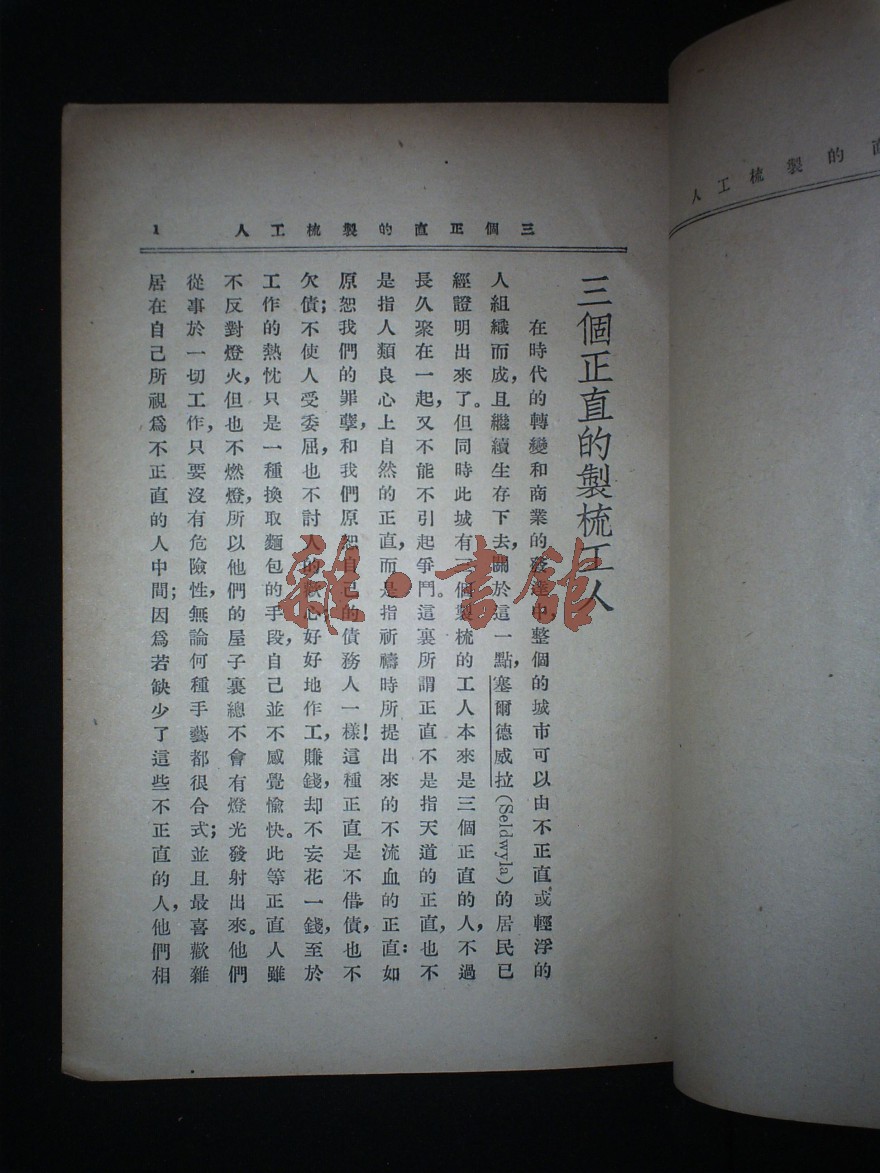 三個正直的製梳工人 1
三個正直的製梳工人
在時代的轉變和商業的發達中,整個的城市可以由不正直或輕浮的
人組織而成,且繼續生存下去,關於這一點,塞爾德威拉(Seldwyla)的居民已
經證明出來了。但同時此城有三個製梳的工人本來是三個正直的人,不過
長久聚在一起,又不能不引起爭鬥。這裏所謂正直不是指天道的正直,也不
是指人類良心上自然的正直,而是指祈禱時所提出來的不流血的正直:如
原恕我們的罪孽,和我們原恕自己的債務人一樣!這種正直是不借債,也不
欠債;不使人受委屈,也不討人的歡心;好好地作工,賺錢,却不妄花一錢,至於
工作的熱忱只是一種換取麵包的手段,自己並不感覺愉快。此等正直人雖
不反對燈火,但也不燃燈,所以他們的屋子裏總不會有燈光發射出來。他們
從事於一切工作,只要沒有危險性,無論何種手藝都很合式;並且最喜歡雜
居在自己所視爲不正直的人中間;因爲若缺少了這些不正直的人,他們相
的製梳工人
雜·書館